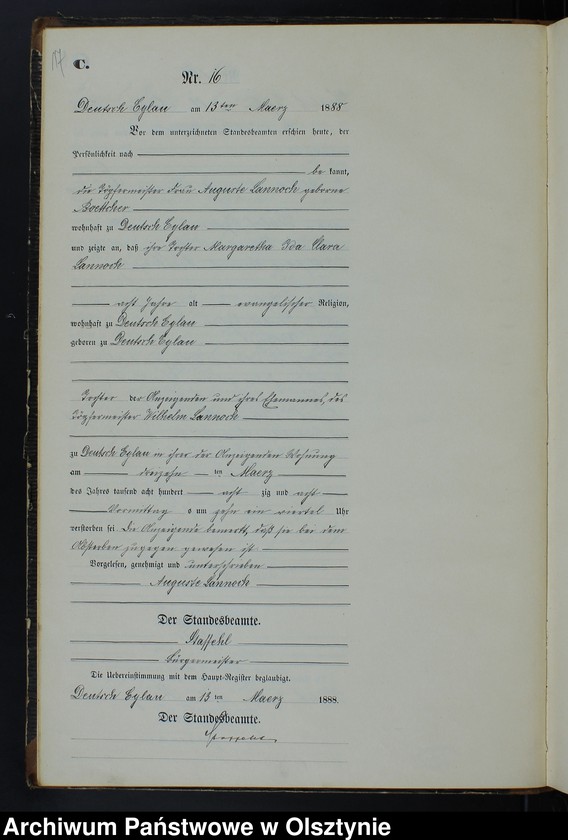 C.
Nr. 16
Deutsch Eylau am 13ten Maerz 1888
Vor dem unterzeichneten Standesbeamten erschien heute, der
Persönlichkeit nach
be kannt,
die Töpfermeister Frau Auguste Lannoch geborene
Boettcher
wohnhaft zu Deutsch Eylau
und zeigte an, daß ihre Tochter Margaretha Ida Clara
Lannoch
acht Jahre alt evangelischer Religion,
wohnhaft zu Deutsch Eylau
geboren zu Deutsch Eylau
Tochter der Anzeigenden und ihres Ehemannes, des
Töpfermeister Wilhelm Lannoch
zu Deutsch Eylau in ihrer der Anzeigenden Wohnung
am dreizehn ten Maerz
des Jahres tausend acht hundert acht zig und acht
Vormittag s um zehn ein viertel Uhr
verstorben sei. Die Anzeigende bemerkt, daß sie bei dem
Absterben zugegen gewesen ist
Vorgelesen, genehmigt und unterschrieben
Auguste Lannoch
Der Standesbeamte.
Staffehl
Bürgermeister
Die Uebereinstimmung mit dem Haupt-Register beglaubigt.
Deutsch Eylau am 13 ten Maerz 1888.
Der Standesbeamte.
Archiwum Państwowe w Olsztynie